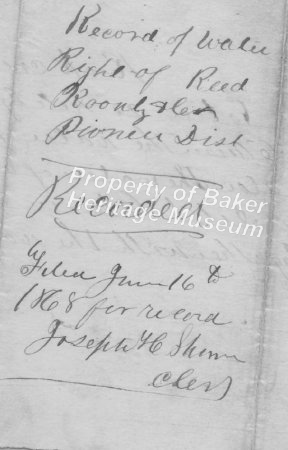 Record of Water
Right of Reed
Pioneer Dist
Property of Baker
Heritage Museum
Recorded
Filed June 16th
1868 for record
Joseph H Shinn
Clerk